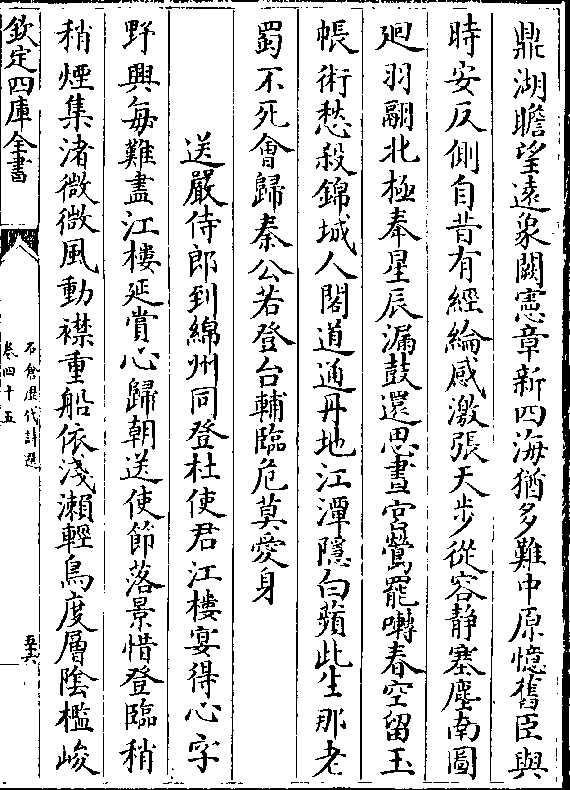 鼎湖瞻望遠象闕憲章新四海猶多難中原憶舊臣與
時安反側自昔有經綸感激張天步從容静塞塵南圖
廻羽翮北極奉星辰漏鼓還思晝宫鶯罷囀春空留玉
帳術愁殺錦城人閣道通丹地江潭隱白蘋此生那老
蜀不死會歸秦公若登台輔臨危莫愛身
送嚴侍郎到綿州同登杜使君江樓宴得心字
野興每難盡江樓延賞心歸朝送使節落景惜登臨稍
稍煙集渚微微風動襟重船依淺瀨輕鳥度層陰檻峻
欽定四庫全書
石倉歷代詩選
卷四十五
五六